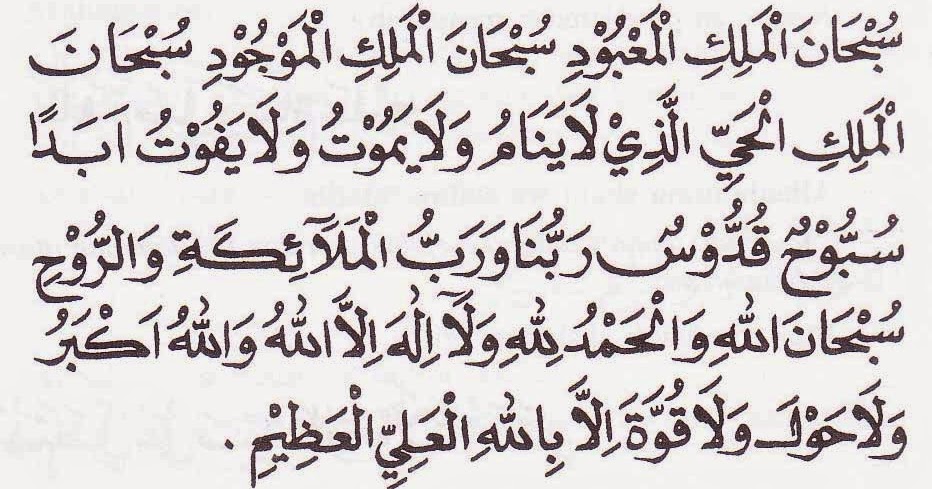 سُبْحَانَ الْمَلِكِ الْمَعْبُوْدِ سُبْحَانَ الْمَلِكِ الْمَوْجُوْدِ سُبْحَانَ
الْمَلِكِ الْحَيِّ الَّذِيْ لَايَنَامُ وَلَايَمُوْتُ وَلَايَفُوْتُ اَبَدًا
سُبُّوْحٌ قُدُّوْسٌ رَبُّنَا وَرَبُّ الْمَلَآئِكَةِ وَالرُّوْحِ
سُبْحَانَ اللهِ وَالْحَمْدُ لِلهِ وَلَآ اِلٰهَ اِلَّا اللهُ وَاللهُ اَكْبَرُ
وَلَا حَوْلَ وَلَا قُوَّةَ اِلَّا بِاللهِ الْعَلِيِّ الْعَظِيْمِ .